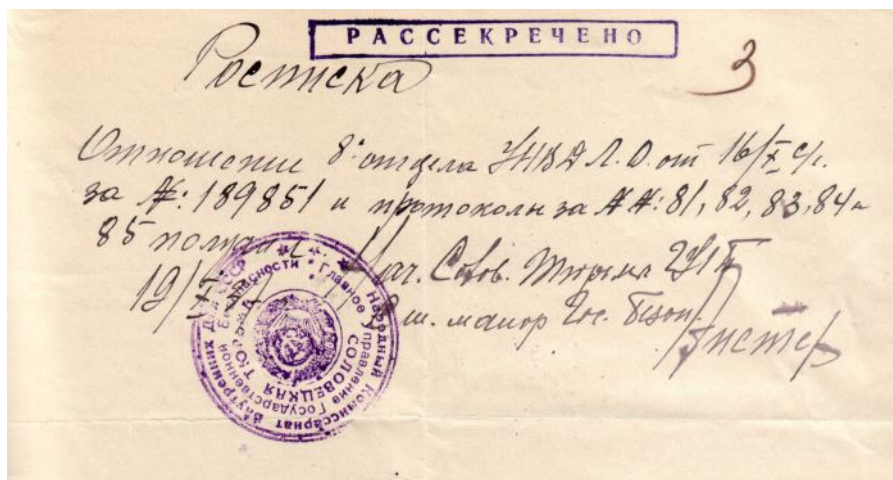 РАССЕКРЕЧЕНО
3
Росписка
Отношение 8го отдела УНВД Л.О. от 16/X с/г.
за №: 189851 и протоколы за №№: 81, 82, 83, 84 и
85 получил.
19/X 37 Нач. Солов. Тюрьмы ГУГБ
Ст. майор Гос. Безоп.
Народный Комиссариат Внутренних Дел СССР
Главное Управление Государственной Безопасности
СОЛОВЕЦКАЯ ТЮРЬМА